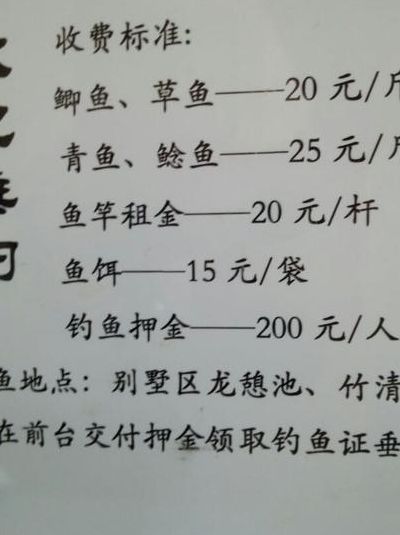 收费标准:
鲫鱼、草鱼——20 元/斤
青鱼、鲶鱼——25 元/斤
鱼竿租金——20 元/杆
鱼饵——15 元/袋
钓鱼押金——200 元/人
鱼地点: 别墅区龙憩池、竹清
在前台交付押金领取钓鱼证垂